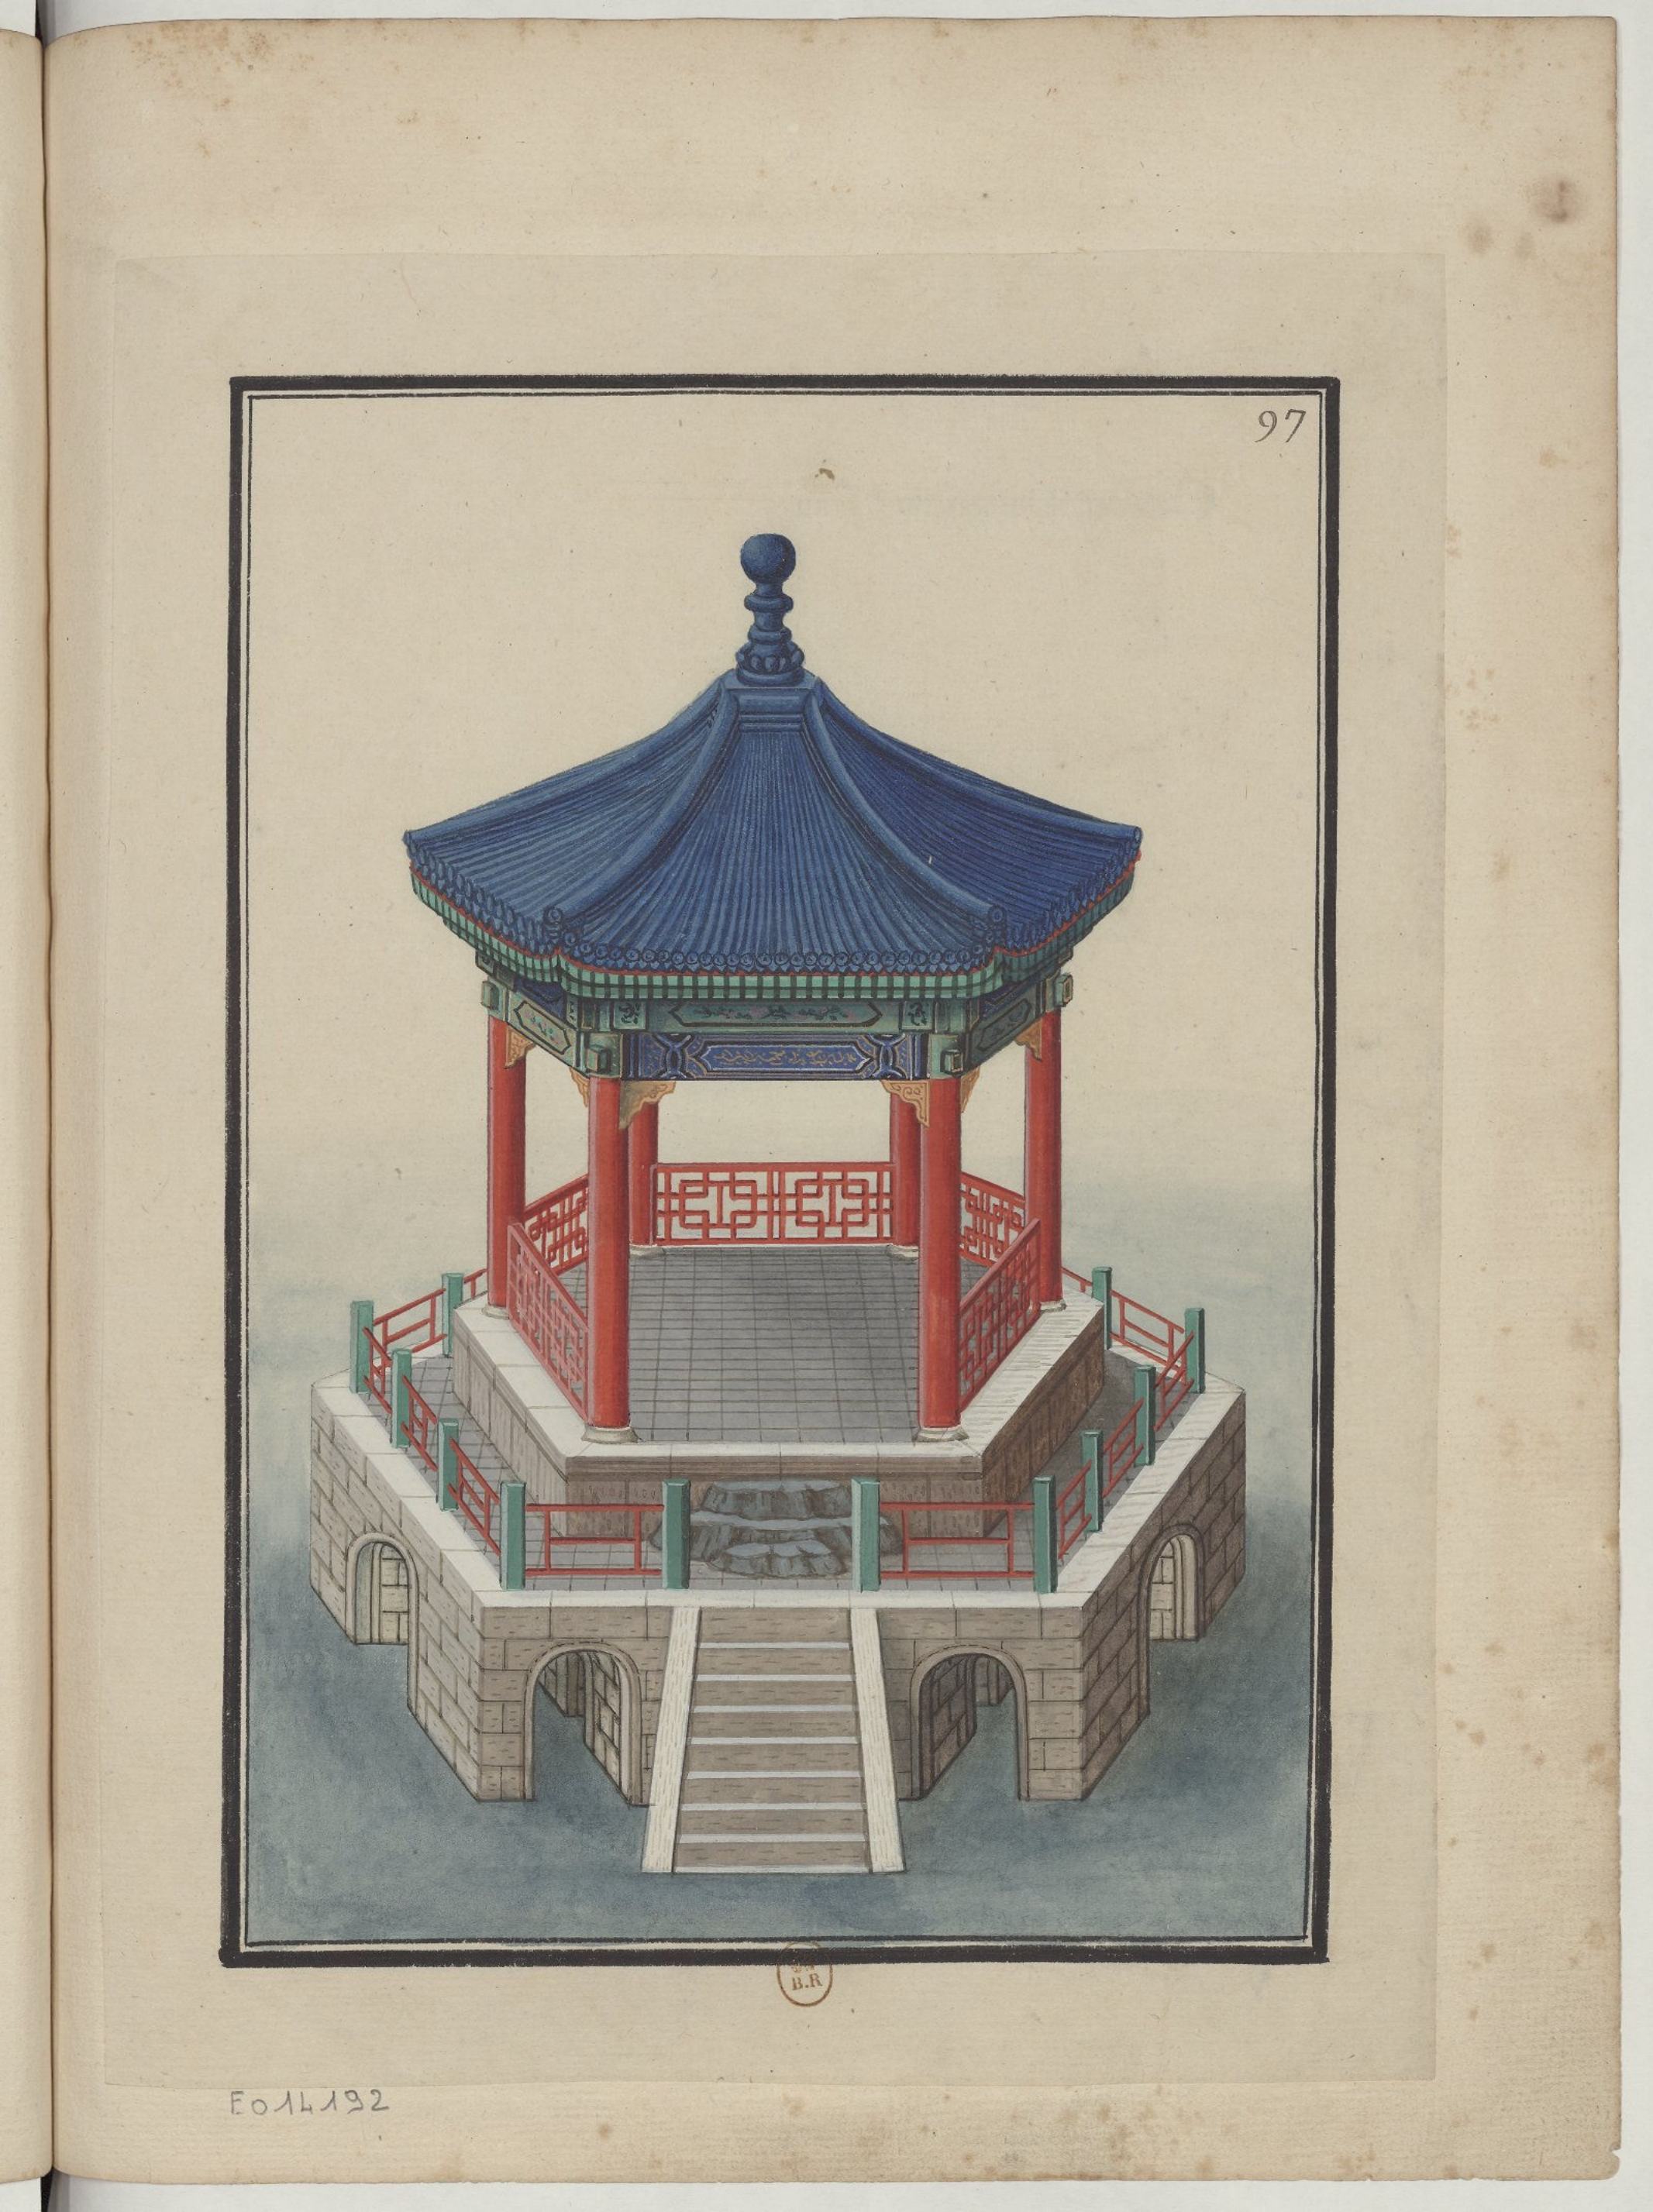 97
B.R
E014192